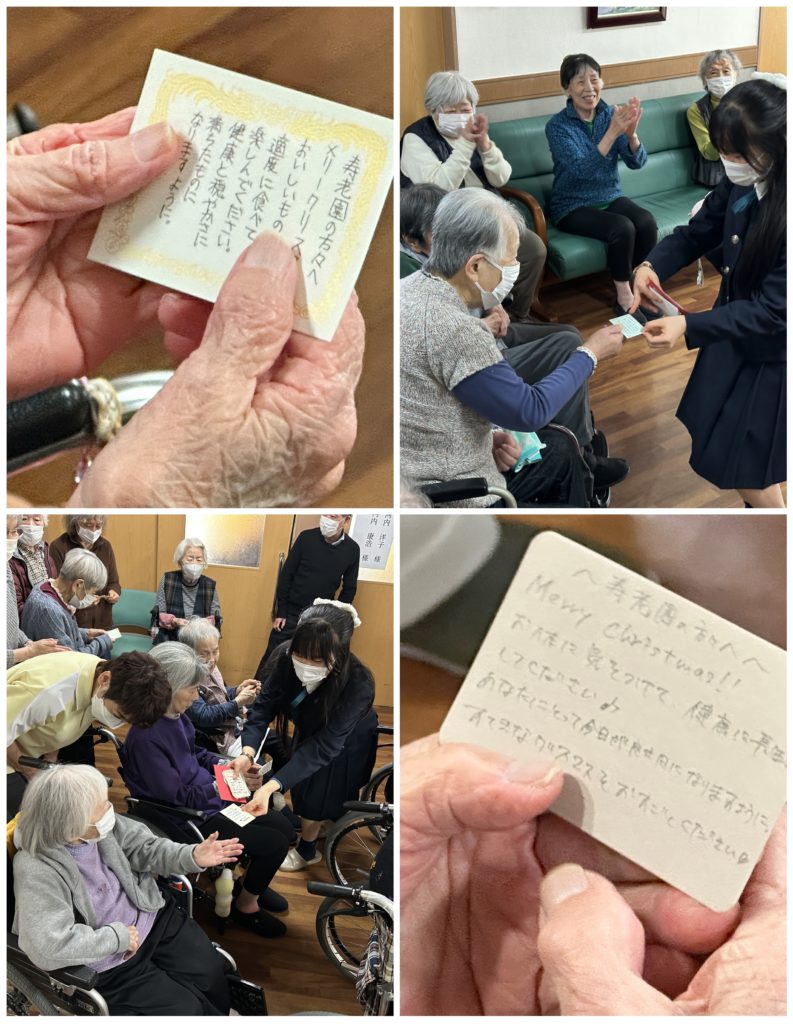 寿老園の方々へ
メリークリスマ
おいしいもの
適度に食べて
楽しんでください。
健康と穏やかさに
満ちたものに
なりますように。
河内 洋子 様
河内 康浩 様
〜寿老園の方々へ〜
Merry Christmas!!
お体に気をつけて、健康に長生
してください♪
あなたにとって今日が良き日になりますように。
すてきなクリスマスをおすごしください。